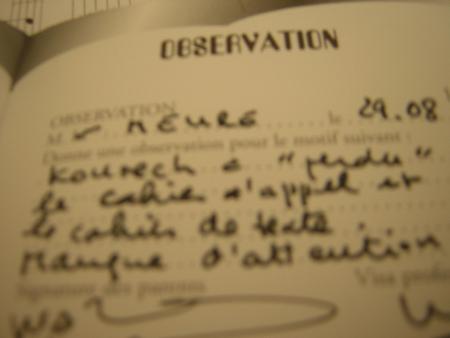 OBSERVATION
OBSERVATION
M. le 29.08
Donne une observation pour le motif suivant :
a "perdu"
le cahier d'appel et
le cahier de texte
Manque d'attention
Signature des parents Visa